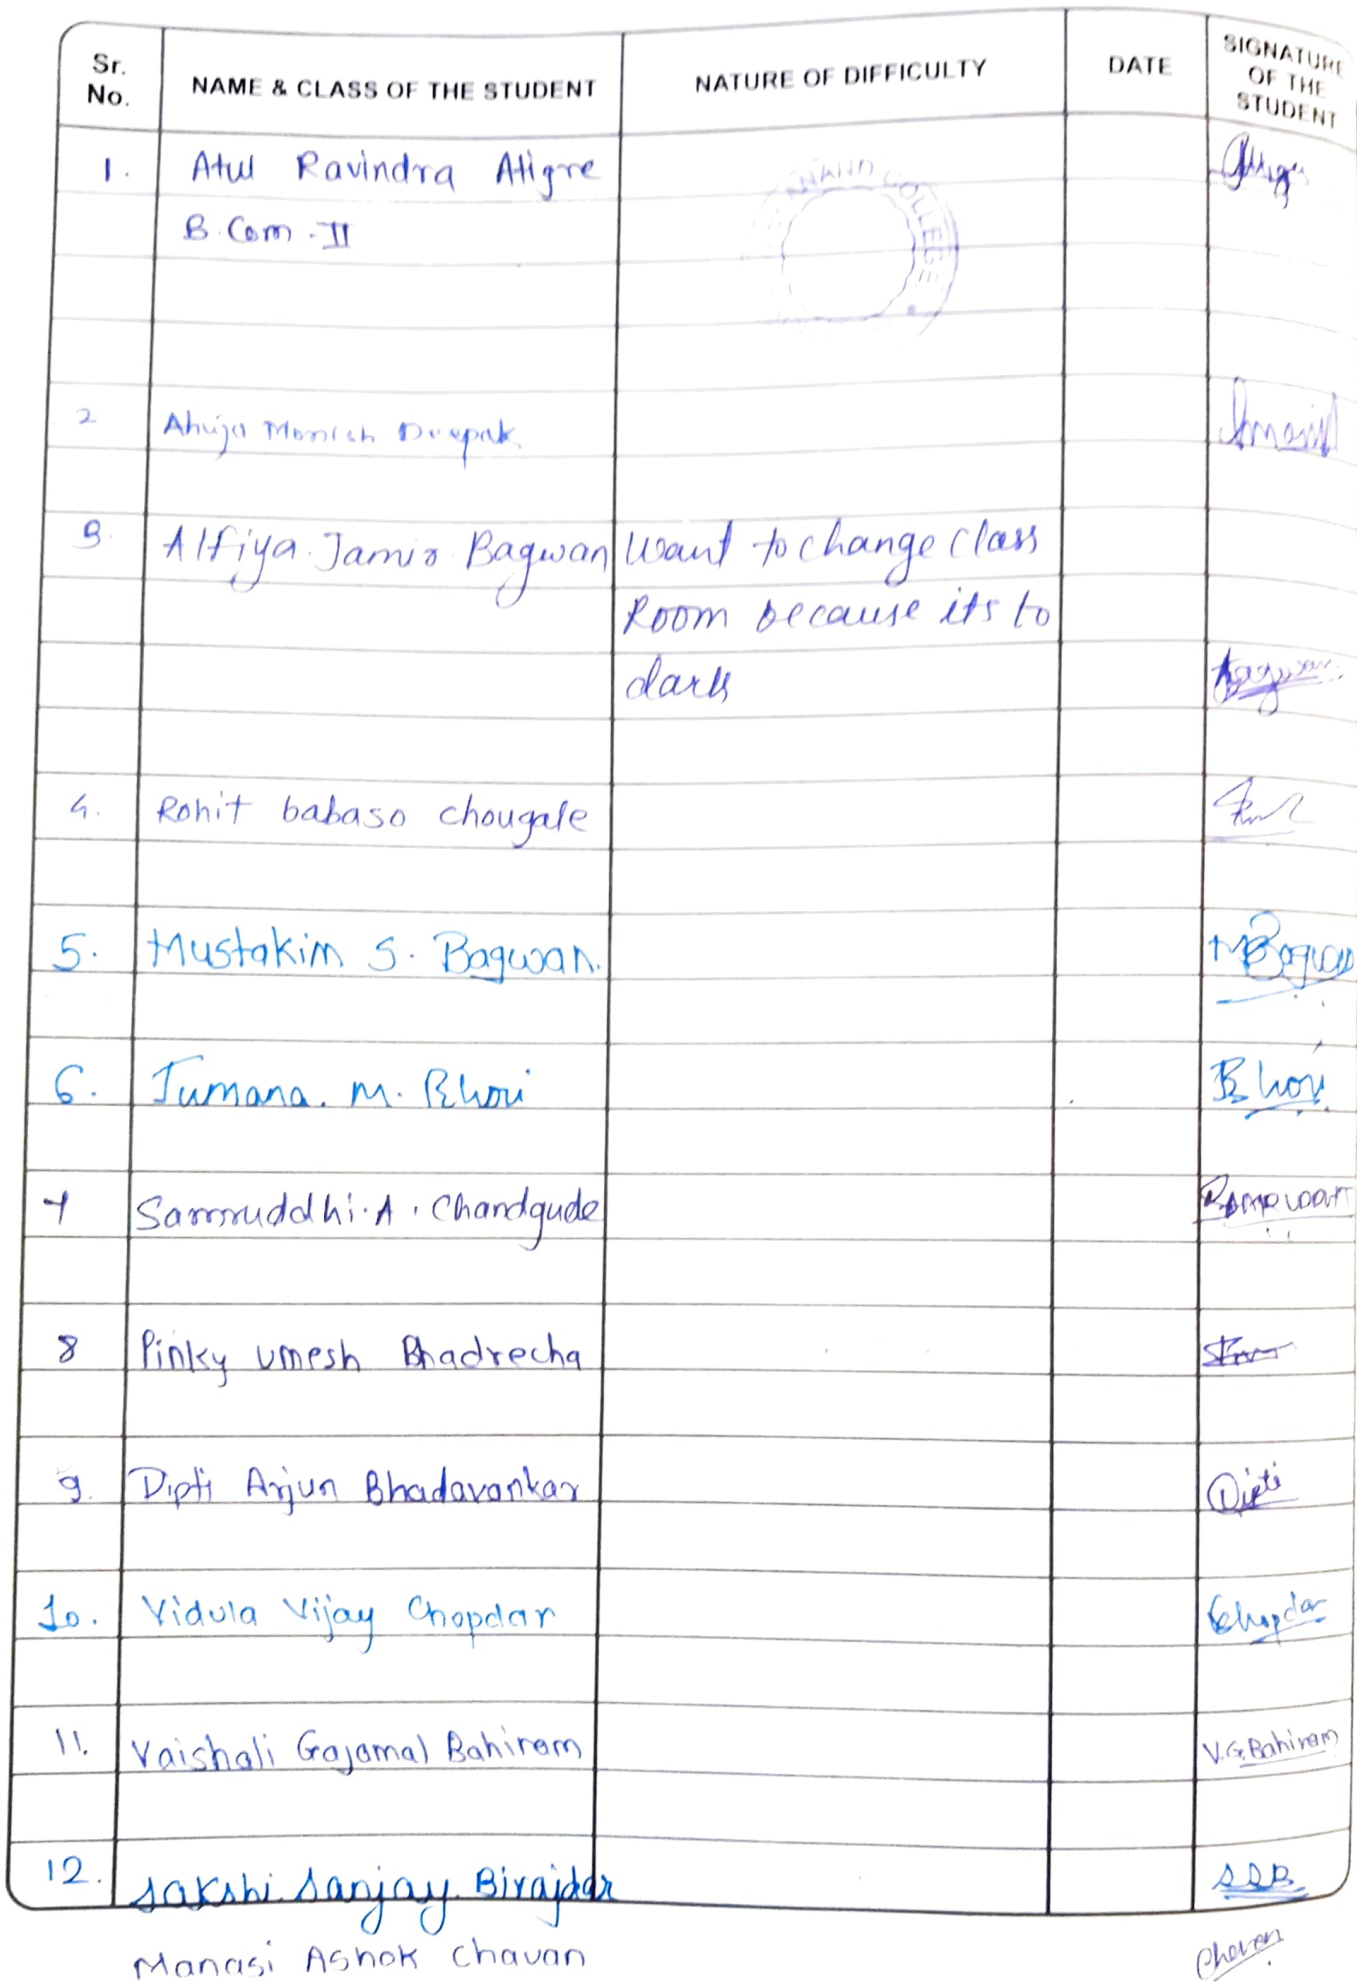 Sr. No.
NAME & CLASS OF THE STUDENT
NATURE OF DIFFICULTY
DATE
SIGNATURE OF THE STUDENT
1. Atul Ravindra Atigre
B.Com-II
NAND COLLEGE
2 Ahuja Monish Deepak
3. Alfiya Jamir Bagwan Want to change class
Room because its to
dark Bagwan
4. Rohit babaso chougale
5. Mustakim S. Bagwan. M Bagwan
6. Jumana. M. Bhori Bhori
7 Sammruddhi.A. Chandgude
8 Pinky umesh Bhadrecha
9. Dipti Arjun Bhadavankar Dipti
10. Vidula Vijay Chopdar Chopdar
11. Vaishali Gajamal Bahiram V.G.Bahiram
12. Sakshi Sanjay Birajdar SSB
Manasi Ashok Chavan Chavan